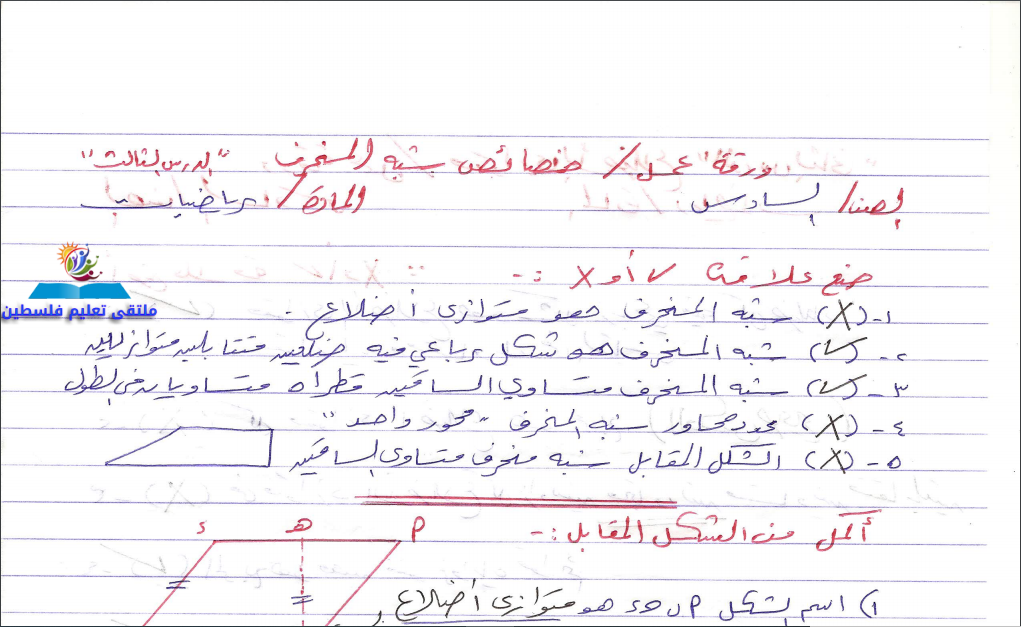 ورقة عمل / خصائص شبه المنحرف "الدرس الثالث"
الصف / السادس المادة / رياضيات
ضع علامة √ أو X :-
١- (X) شبه المنحرف هو متوازي أضلاع .
٢- (√) شبه المنحرف هو شكل رباعي فيه ضلعين متقابلين متوازيين
٣- (√) شبه المنحرف متساوي الساقين قطراه متساويان في الطول
٤- (X) محاور شبه المنحرف "محور واحد"
٥- (X) الشكل المقابل شبه منحرف متساوي الساقين
ملتقى تعليم فلسطين
أكمل من الشكل المقابل :-
أ هـ د
١) اسم الشكل هو متوازي أضلاع